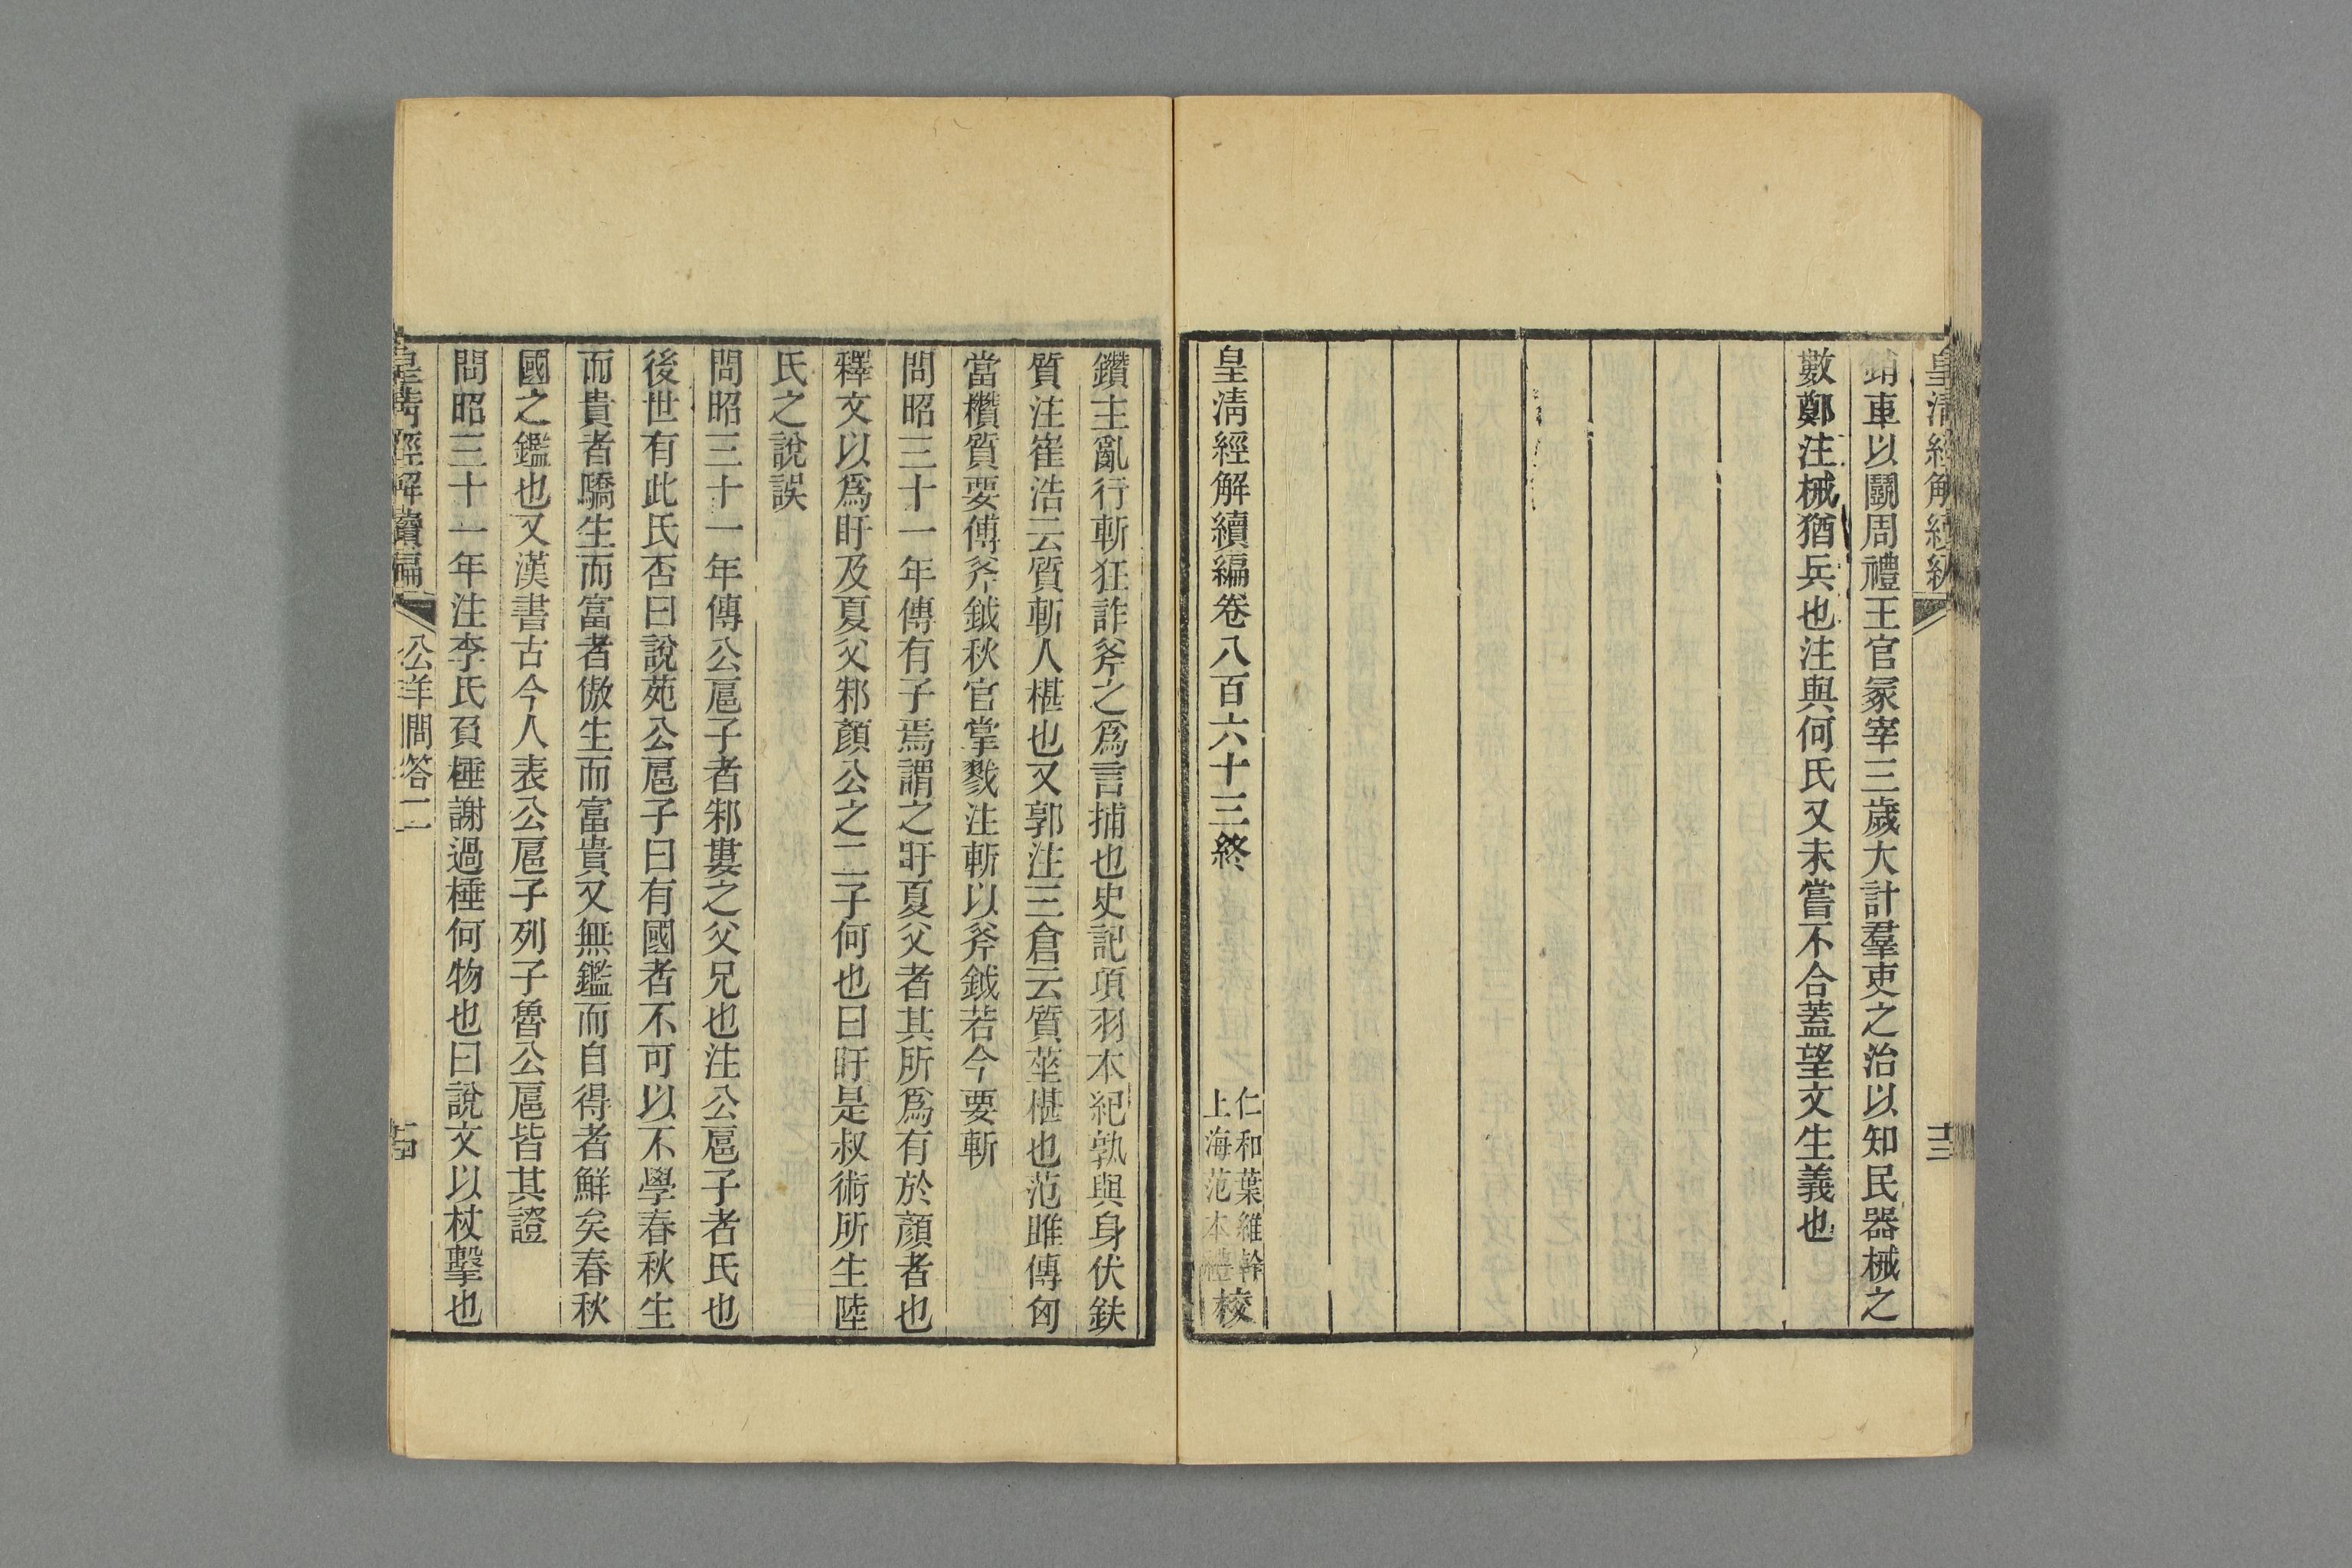 皇清經解續編
十三
銷車以鬭周禮王官冢宰三歲大計羣吏之治以知民器械之
數鄭注械猶兵也注與何氏又未嘗不合蓋望文生義也
皇清經解續編卷八百六十三終
仁和葉維幹
上海范本禮
校
鑽主亂行斬狂詐斧之爲言捕也史記項羽本紀孰與身伏鈇
質注崔浩云質斬人椹也又郭注三倉云質莝椹也范雎傳匈
當櫕質要傅斧鉞秋官掌戮注斬以斧鉞若今要斬
問昭三十一年傳有子焉謂之盱夏父者其所爲有於顏者也
釋文以爲盱及夏父邾顏公之二子何也曰盱是叔術所生陸
氏之說誤
問昭三十一年傳公扈子者邾婁之父兄也注公扈子者氏也
後世有此氏否曰說苑公扈子曰有國者不可以不學春秋生
而貴者驕生而富者傲生而富貴又無鑑而自得者鮮矣春秋
國之鑑也又漢書古今人表公扈子列子魯公扈皆其證
問昭三十一年注李氏頁棰謝過棰何物也曰說文以杖擊也
皇清經解續編
公羊問答二